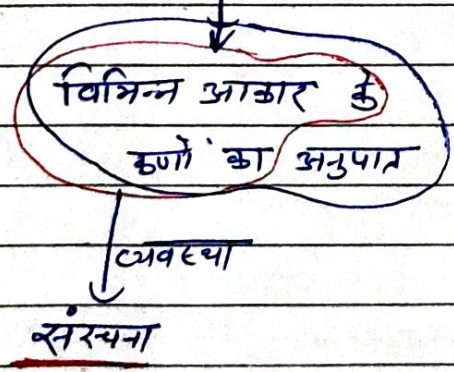 विभिन्न आकार के
कणों का अनुपात
व्यवस्था
संरचना